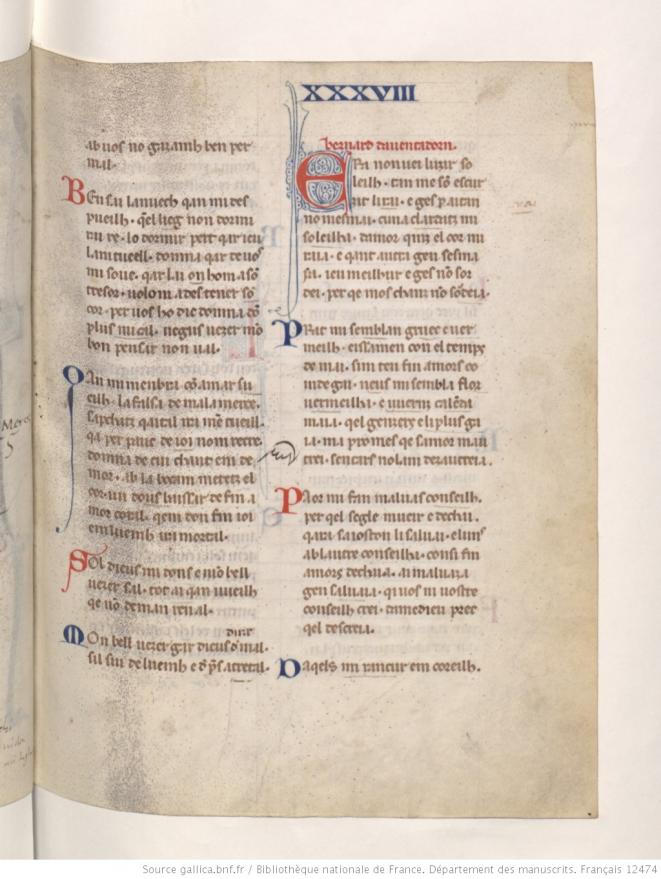 XXXVIII
ab uos no gazainh ben per
mal.
BEn sai la nuech qan mi des
pueilh. qel lieg non dormi
rai re. lo dormir pert qar ieu
lam tueill. domna qar de uos
mi soue. qar lai on hom a sō
tresor. uol om ades tener so
cor. per uos ho dic domna cō
plus mi cal. negus uezer mō
bon pensar non ual.
QAn mi menbra cō amar su
eilh. la falsa de mala merce.
sapchatz qa tal ira mē cueill.
qa per pauc de ioi nom recre.
domna de cui chant em de
mor. ab la bocam metetz el
cor. un dous baissar de fin a
mor coral. qem don fin ioi
em luemh ira mortal.
SOl dieus mi don so e mō bell
uezer sal. tot ai qan uueilh
qe uō deman ren al.
dure
MOn bell uezer gar dieus d mal.
sil sui de luemh e d ps atretal.
bernard dauentadorn.
ERa non uei luzir so
leilh. tan me sō escur
zit li rai. e ges p aitan
no mesmai. cuna clardatz mi
soleilha. damor qinz el cor mi
raia. e qant autra gen sesma
ia. ieu meilhur e ges nō sor
dei. per qe mos chanz nō sordeia.
PRat mi semblan groc e uer
meilh. eissamen con el temps
de mai. sim ten fin amors co
inde gai. neus mi sembla flor
uermeilha. e iuernz calēda
maia. qel genzer e li plus ga
ia. ma promes qe samor mau
trei. sencars nolam desautreia.
PAor mi fan maluas conseilh.
per qel segle mueir e dechai.
qara saioston li saluai. e luns
ab lautre conseilha. consi fin
amors dechaia. ai maluaza
gen saluaia. qi uos ni uostre
conseilh crei. damedieu perc
qel descreia.
DAqels mi rancur em coreilh.
Source gallica.bnf.fr / Bibliothèque nationale de France. Département des manuscrits. Français 12474